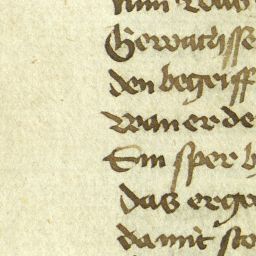 nun was
Gewachsse
den begriff
wan er de
Ein sper b
das erge
da mit sto